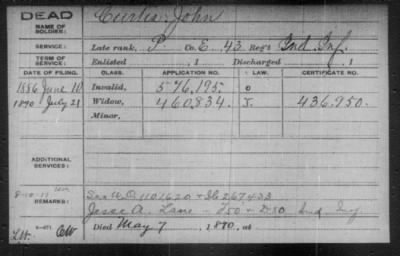 DEAD
NAME OF SOLDIER:
Curtis, John
SERVICE:
Late rank, P. Co. E, 43 Reg't Ind. Inf.
TERM OF SERVICE:
Enlisted , 1 Discharged , 1
DATE OF FILING. CLASS. APPLICATION NO. LAW. CERTIFICATE NO.
1886 June 10 Invalid, 576,195. o
1890 July 21 Widow, 460,834. J. 436,950.
Minor,
ADDITIONAL SERVICES:
REMARKS:
1101620 + 267433
Jesse A. Lane - Ind Inf
Died May 7, 1890, at